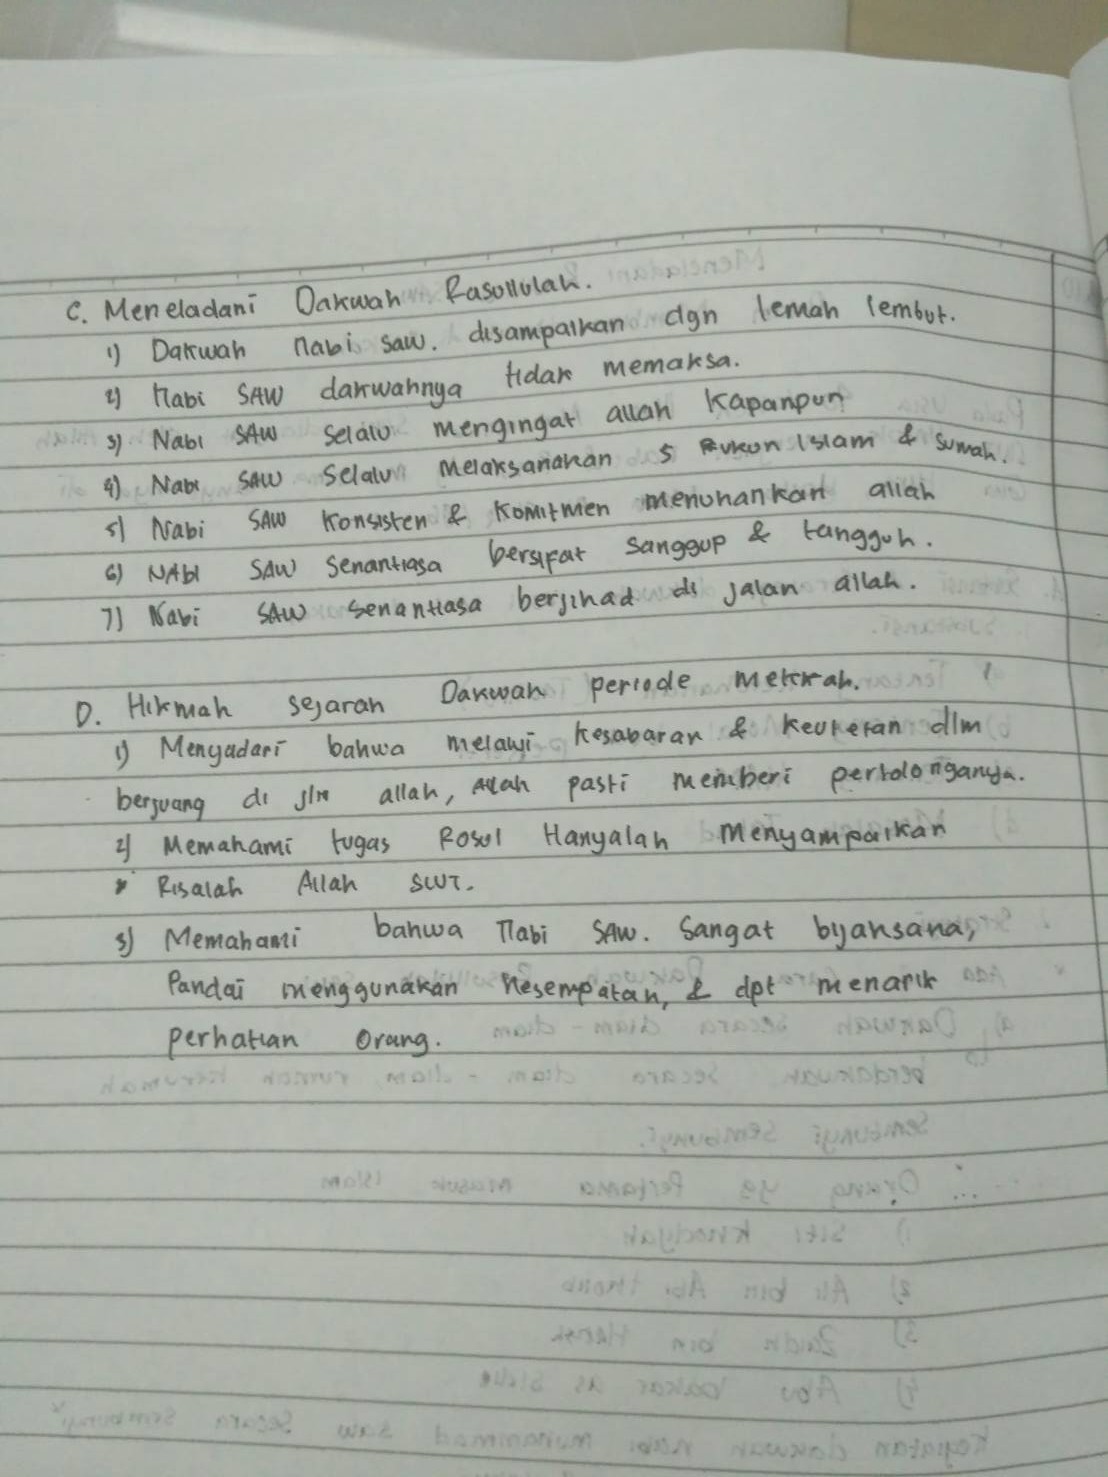 C. Meneladani Dakwah Rasollulah.
1) Dakwah nabi saw. disampaikan dgn lemah lembut.
2) Nabi SAW dakwahnya tidak memaksa.
3) Nabi SAW selalu mengingat allah kapanpun
4) Nabi SAW selalu melaksanakan 5 Rukun Islam & sunnah.
5) Nabi SAW konsisten & komitmen menuhankan allah
6) NAbi SAW senantiasa bersifat sanggup & tangguh.
7) Nabi SAW senantiasa berjihad di jalan allah.
D. Hikmah sejarah Dakwah periode mekkah.
1) Menyadari bahwa melalui kesabaran & keuletan dlm
berjuang di jln allah, Allah pasti memberi pertolonganya.
2) Memahami tugas Rosul Hanyalah Menyampaikan
Risalah Allah SWT.
3) Memahami bahwa Nabi SAW. Sangat bijaksana,
Pandai menggunakan kesempatan, & dpt menarik
perhatian orang.